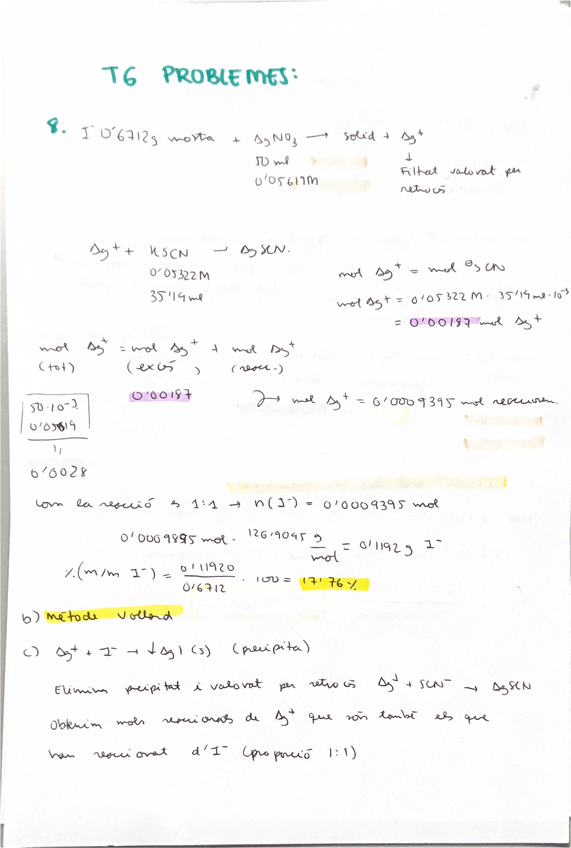 T6 PROBLEMES:
8. I⁻ 0'6712g mostra + AgNO3 → solid + Ag⁺
50 ml ↓
0'05619M Filtrat valorat per
retrocés
Ag⁺ + KSCN → AgSCN.
0'05322 M
35'14 ml
mol Ag⁺ = mol SCN
mol Ag⁺ = 0'05322 M · 35'14 ml·10⁻³
= 0'00187 mol Ag⁺
mol Ag⁺ = mol Ag⁺ + mol Ag⁺
(tot) (excés) (reacc.)
0'00187 → mol Ag⁺ = 0'0009395 mol reaccionen
50·10⁻³
0'05619
0'0028
Com la reacció és 1:1 → n(I⁻) = 0'0009395 mol
0'0009395 mol · 126'9045 g/mol = 0'1192 g I⁻
%(m/m I⁻) = 0'11920/0'6712 · 100 = 17'76%
b) Mètode Volhard
c) Ag⁺ + I⁻ → ↓AgI (s) (precipita)
Elimim pcipitat i valorat per retrocés Ag⁺ + SCN⁻ → AgSCN
Obtenim mols reaccionats de Ag⁺ que són també els que
han reaccionat d'I⁻ (proporció 1:1)